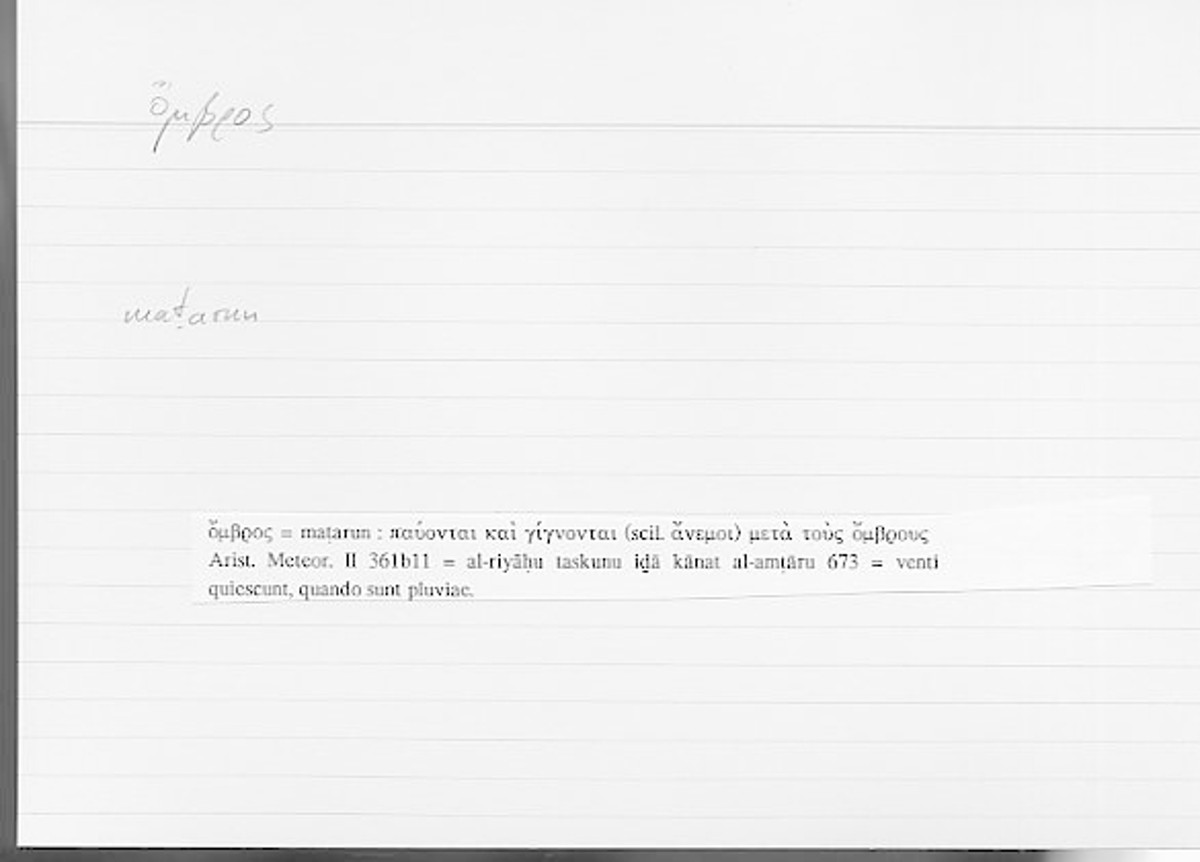 ὄμβρος
maṭarun
ὄμβρος = maṭarun : παύονται καὶ γίγνονται (scil. ἄνεμοι) μετὰ τοὺς ὄμβρους
Arist. Meteor. II 361b11 = al-riyāḥu taskunu iḏā kānat al-amṭāru 673 = venti
quiescunt, quando sunt pluviae.